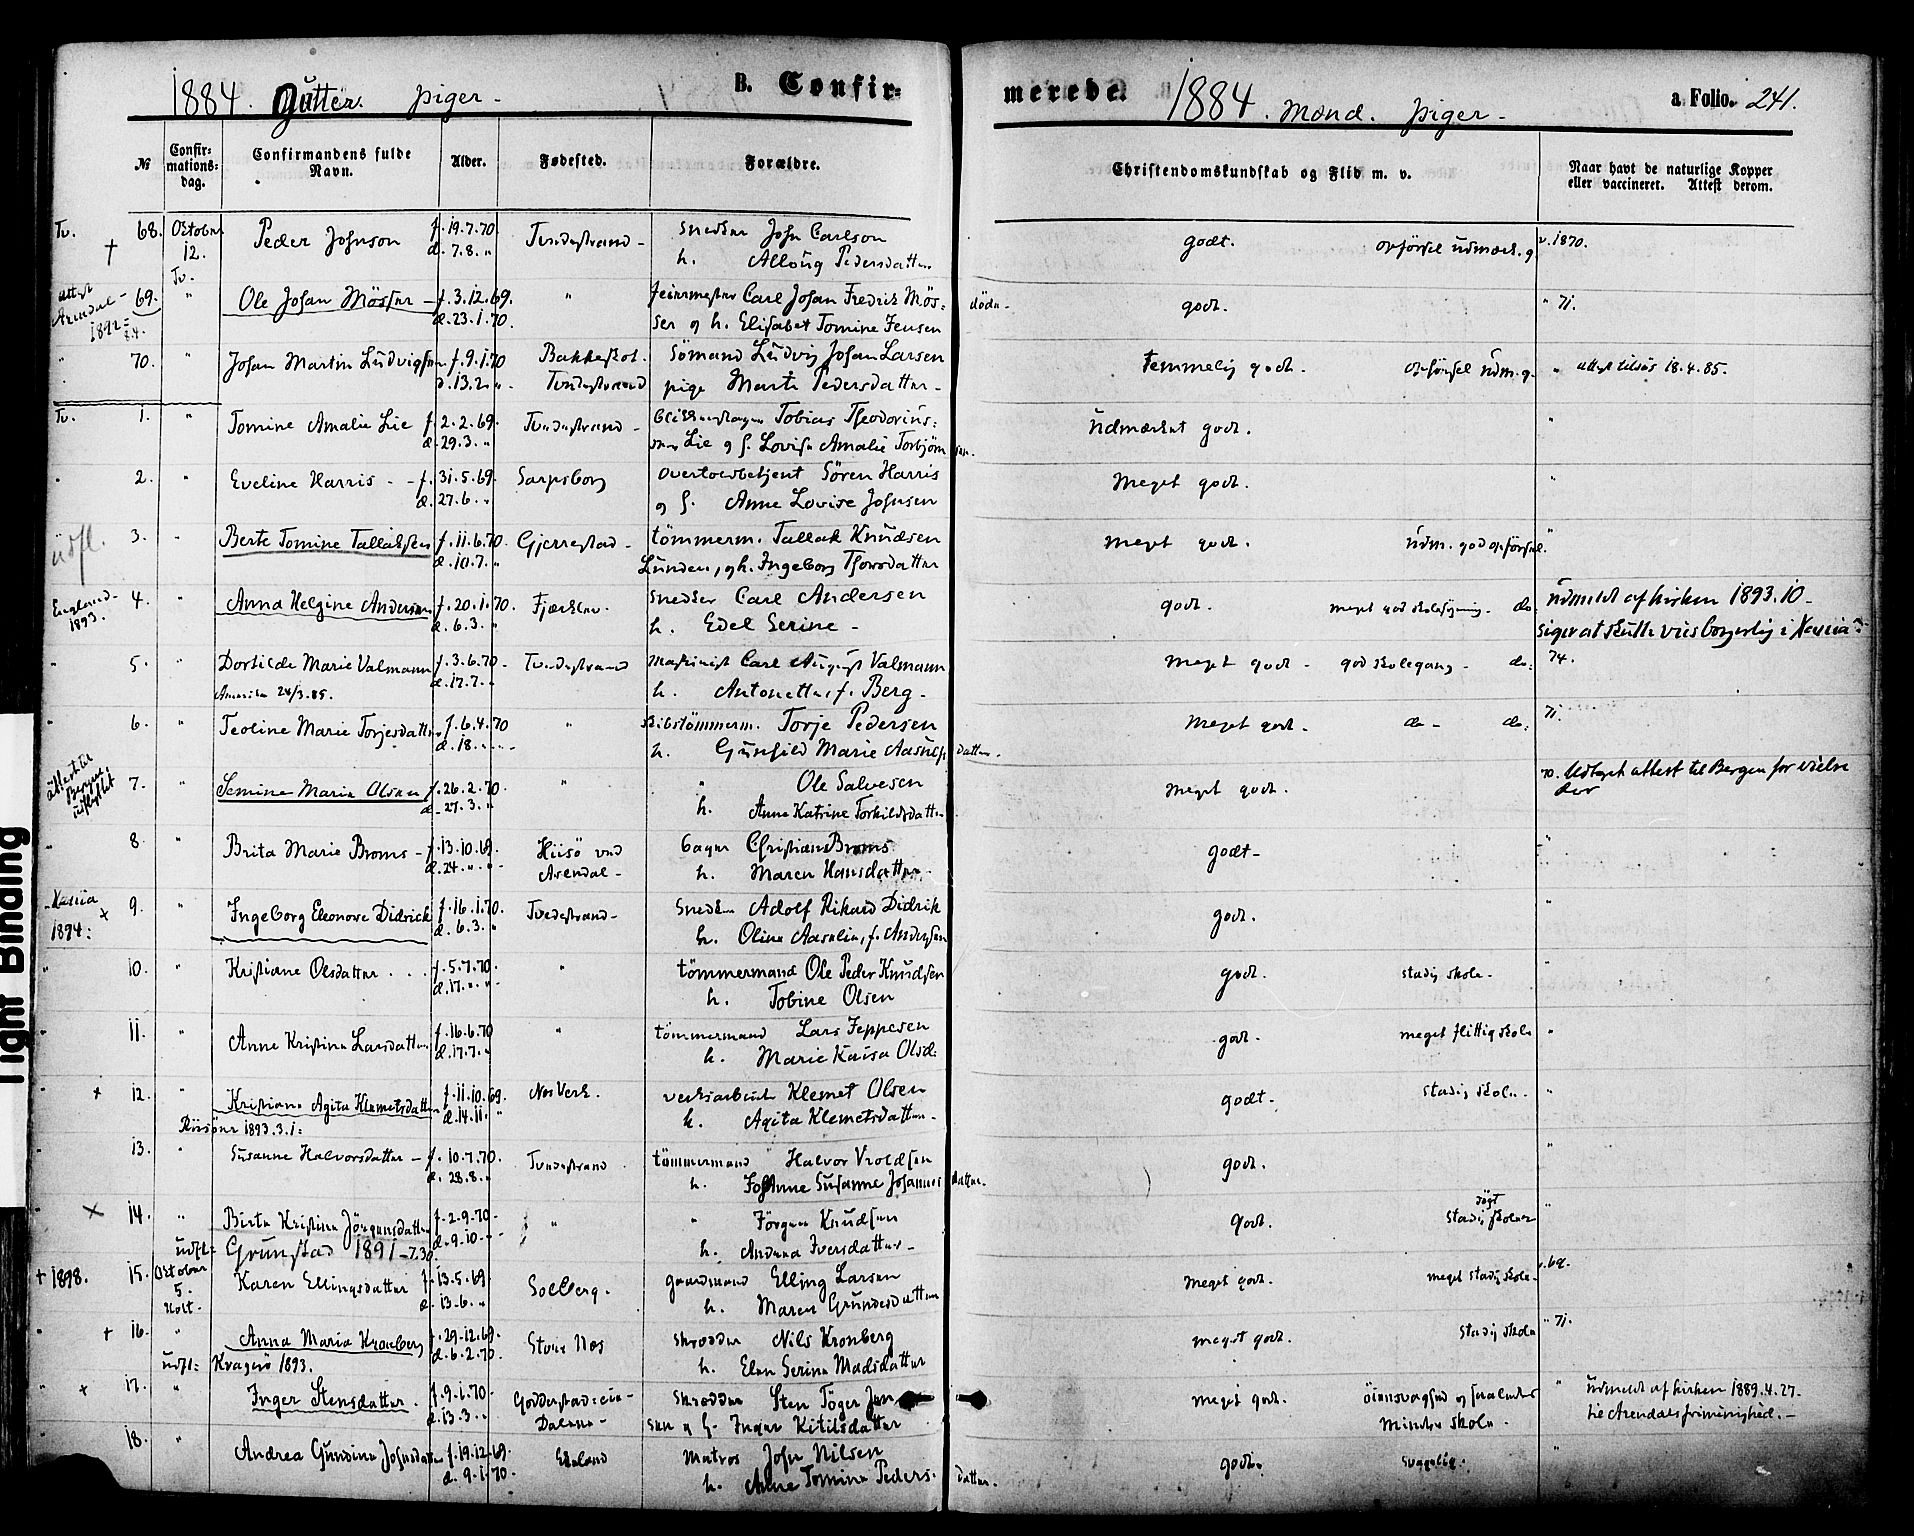 1884. Gutter. piger. B. Confir=
№ Confir=mations=dag. Confirmandens fulde Navn. Alder. Fødested. Forældre.
Tv. † 68. Oktober 12. Tv. Peder Johnson f. 19.7.70. d. 7.8. " Tvedestrand - Snedker John Carlson
h. Pedersdatter
attest Arendal - 1892 69. " Ole Johan Mösser - f. 3.12.69. d. 23.1.70. " feiermester Carl Johan Fredrik Mös=
ser og h. Elisabet Tomine Jensen
" 70. " Johan Martin Ludvigsen f. 9.1.70 d. 13.2. " Bakkeskot. Tvedestrand Sömand Ludvig Johan Larsen
pige Marte Pedersdatter -
Tv. 1. " Tomine Amalie Lie f. 2.2.69. d. 29.3. " Tvedestrand - Tobias Theodorius=
sen Lie og h. Lovise Amalie Torbjörnsen.
" 2. " Eveline Harris - f. 31.5.69. d. 27.6. " Sarpsborg Overtoldbetjent Sören Harris
og h. Anne Lovise Johnsen
udfl. 3. " Berte Tomine Tallaksen f. 11.6.70. d. 10.7. " Gjerrestad - tömmerm. Tallak Knudsen
Lunden, og h. Ingeborg Thorsdatter
England - 1893. 4. " Anna Helgine Andersen f. 20.1.70. d. 6.3. " Fjærkler. Snedker Carl Andersen
h. Edel Serine -
" 5. " Dortilde Marie Valmann f. 3.6.70. d. 17.7. " Tvedestrand Maskinist Carl August Valmann
Amerika 24/3.85. h. Antonette, f. Berg -
" 6. " Teoline Marie Torjesdatter f. 6.4.70 d. 18. " " Skibstömmerm. Torje Pedersen
h. Gunhild Marie Aasulfsdatter.
attest til Bergen, udflyttet 7. " Semine Marie Olsen f. 26.2.70. d. 27.3. " " " Ole Salvesen
h. Anne Katrine Torkildsdatter
" 8. " Brita Marie Broms - f. 13.10.69. d. 24. " " Hiisö ved Arendal - Bager Christian Broms
h. Maren Hansdatter
1894: + 9. " Ingeborg Eleonore Didrick f. 16.1.70. d. 6.3. " Tvedestrand - Snedker Adolf Rikard Didrik
h. Oline Aaselie, f. Andersen
" 10. " Kristiane Olsdatter . . . f. 5.7.70. d. 17. " " " tömmermand Ole Peder Knudsen
h. Tobine Olsen
" 11. " Anne Kristine Larsdatter f. 16.6.70 d. 17.7. " " tömmermand Lars Jeppesen
h. Marie Kaisa Olsd:
" + 12. " Kristiane Agita Klemetsdatter f. 11.10.69. d. 14.11. " Nes Verk. verksarbeider Klemet Olsen
Risöer 1893.3.1: h. Agita Klemetsdatter -
" 13. " Susanne Halvorsdatter - f. 10.7.70. d. 28.8. " Tvedestrand tömmermand Halvor Vroldsen
h. Anne Susanne Johannesdatter.
" × 14. " Birte Kristine Jörgensdatter f. 2.9.70 - d. 9.10 - " " " Jörgen Knudsen
udfl: Grimstad 1891 - 7.30. h. Andrea Iversdatter -
+ 1898. 15. Oktober 5. Holt. Karen Ellingsdatter f. 13.5.69. d. 13.6. " Solberg. gaardmand Elling Larsen
h. Maren Gundersdatter
" + 16. " Anna Maria Kronberg f. 29.12.69. d. 6.2.70. Store Nes Skrædder Nils Kronberg
udfl: Kragerö 1893. h. Elen Serine Madsdatter
" + 17. " Inger Stensdatter. f. 9.1.70 - d. 13.3. " Dalene - Skrædder Sten Töger Jen
sen og h. Inger Kitilsdatter
" 18. " Andrea Gundine Johnsdatter f. 19.12.69. d. 9.1.70. Ekeland Matros John Nilsen
h. Anne Tomine Pedersdatter.
merede. 1884. Mand. piger - a. Folio. 241.
Christendomskundskab og Flid m. v. Naar havt de naturlige Kopper eller vaccineret. Attest derom.
godt. opförsel udmærk. g. v. 1870.
döde - godt. " 71.
temmelig godt. opförsel udm. g. " attest tilsös 18.4.85.
Udmærket godt. "
Meget godt. "
meget godt. udm. god opförsel. "
godt. meget god skolesögning - do: Udmeldt af kirken 1893.10 -
siger at skulle vies borgerlig i
meget godt - god skolegang - do: 74.
Meget godt. do - do: 71.
meget godt. 70. Udtaget attest til Bergen for vielse
der
godt - "
godt. "
godt. stadig skole - "
godt. meget flittig skole "
godt. stadig skole. "
godt. "
godt. stadig skolen "
Meget godt. meget stadig skole - v. 69.
meget godt. stadig skole " 71.
meget godt. mindre skole - " udmeldt af kirken 1889.4.27 -
til Arendals frimenighed. -
godt. svagelig. "
Tight Binding